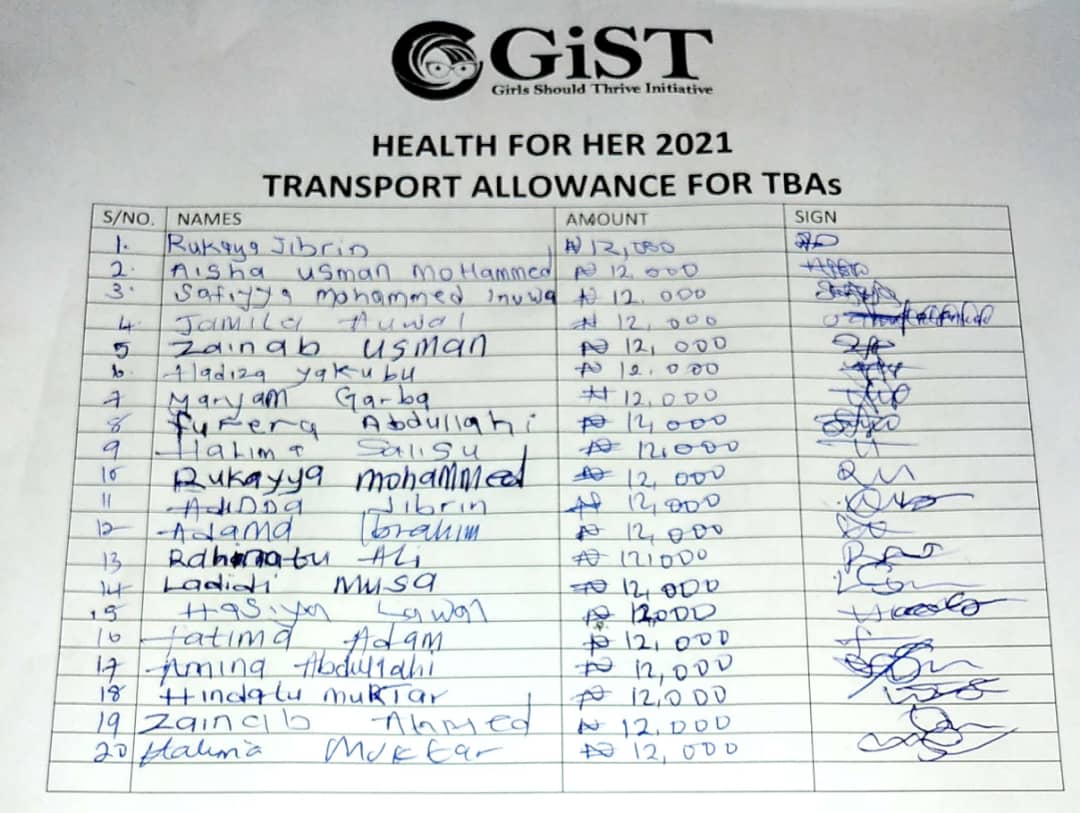 GiST
Girls Should Thrive Initiative
HEALTH FOR HER 2021
TRANSPORT ALLOWANCE FOR TBAs
S/NO. NAMES AMOUNT SIGN
1. Rukaya Jibrin ₦ 12,000
2. Aisha Usman Mohammed ₦ 12,000
3. Safiyya Mohammed Inuwa ₦ 12.000
4. Jamila Auwal ₦ 12,000
5 Zainab Usman ₦ 12,000
6. Hadiza Yakubu ₦ 12.000
7 Maryam Garba ₦ 12,000
8 Furera Abdullahi ₦ 12,000
9 Halima Salisu ₦ 12,000
10 Rukayya Mohammed ₦ 12,000
11 Jibrin ₦ 12,000
12 Adama Ibrahim ₦ 12,000
13 Rahmatu Ali ₦ 12,000
14 Ladidi Musa ₦ 12,000
15 Hasiya Lawan ₦ 12,000
16 Fatima Adam ₦ 12,000
17 Amina Abdullahi ₦ 12,000
18 Hindatu Muktar ₦ 12,000
19 Zainab Ahmed ₦ 12.000
20 Halima Muktar ₦ 12,000